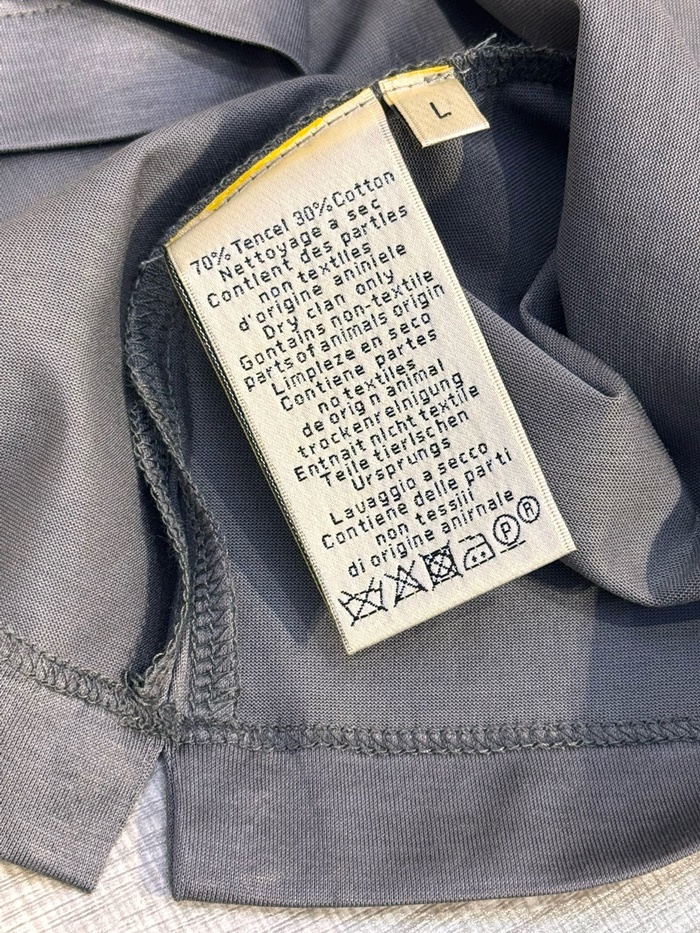 L
70% Tencel 30% Cotton
Nettoyage a sec
Contient des partles
non textiles
d'origine aniniele
Dry clan only
Gontains non-textile
parts of animals origin
Limpleze en seco
Contiene partes
no textiles
de origin animal
trockenreinigung
Entnait nlcht textile
Teile tierlschen
Ursprungs
Lavaggio a secco
Contiene delle parti
non tessjii
di origine anirnale
P
R